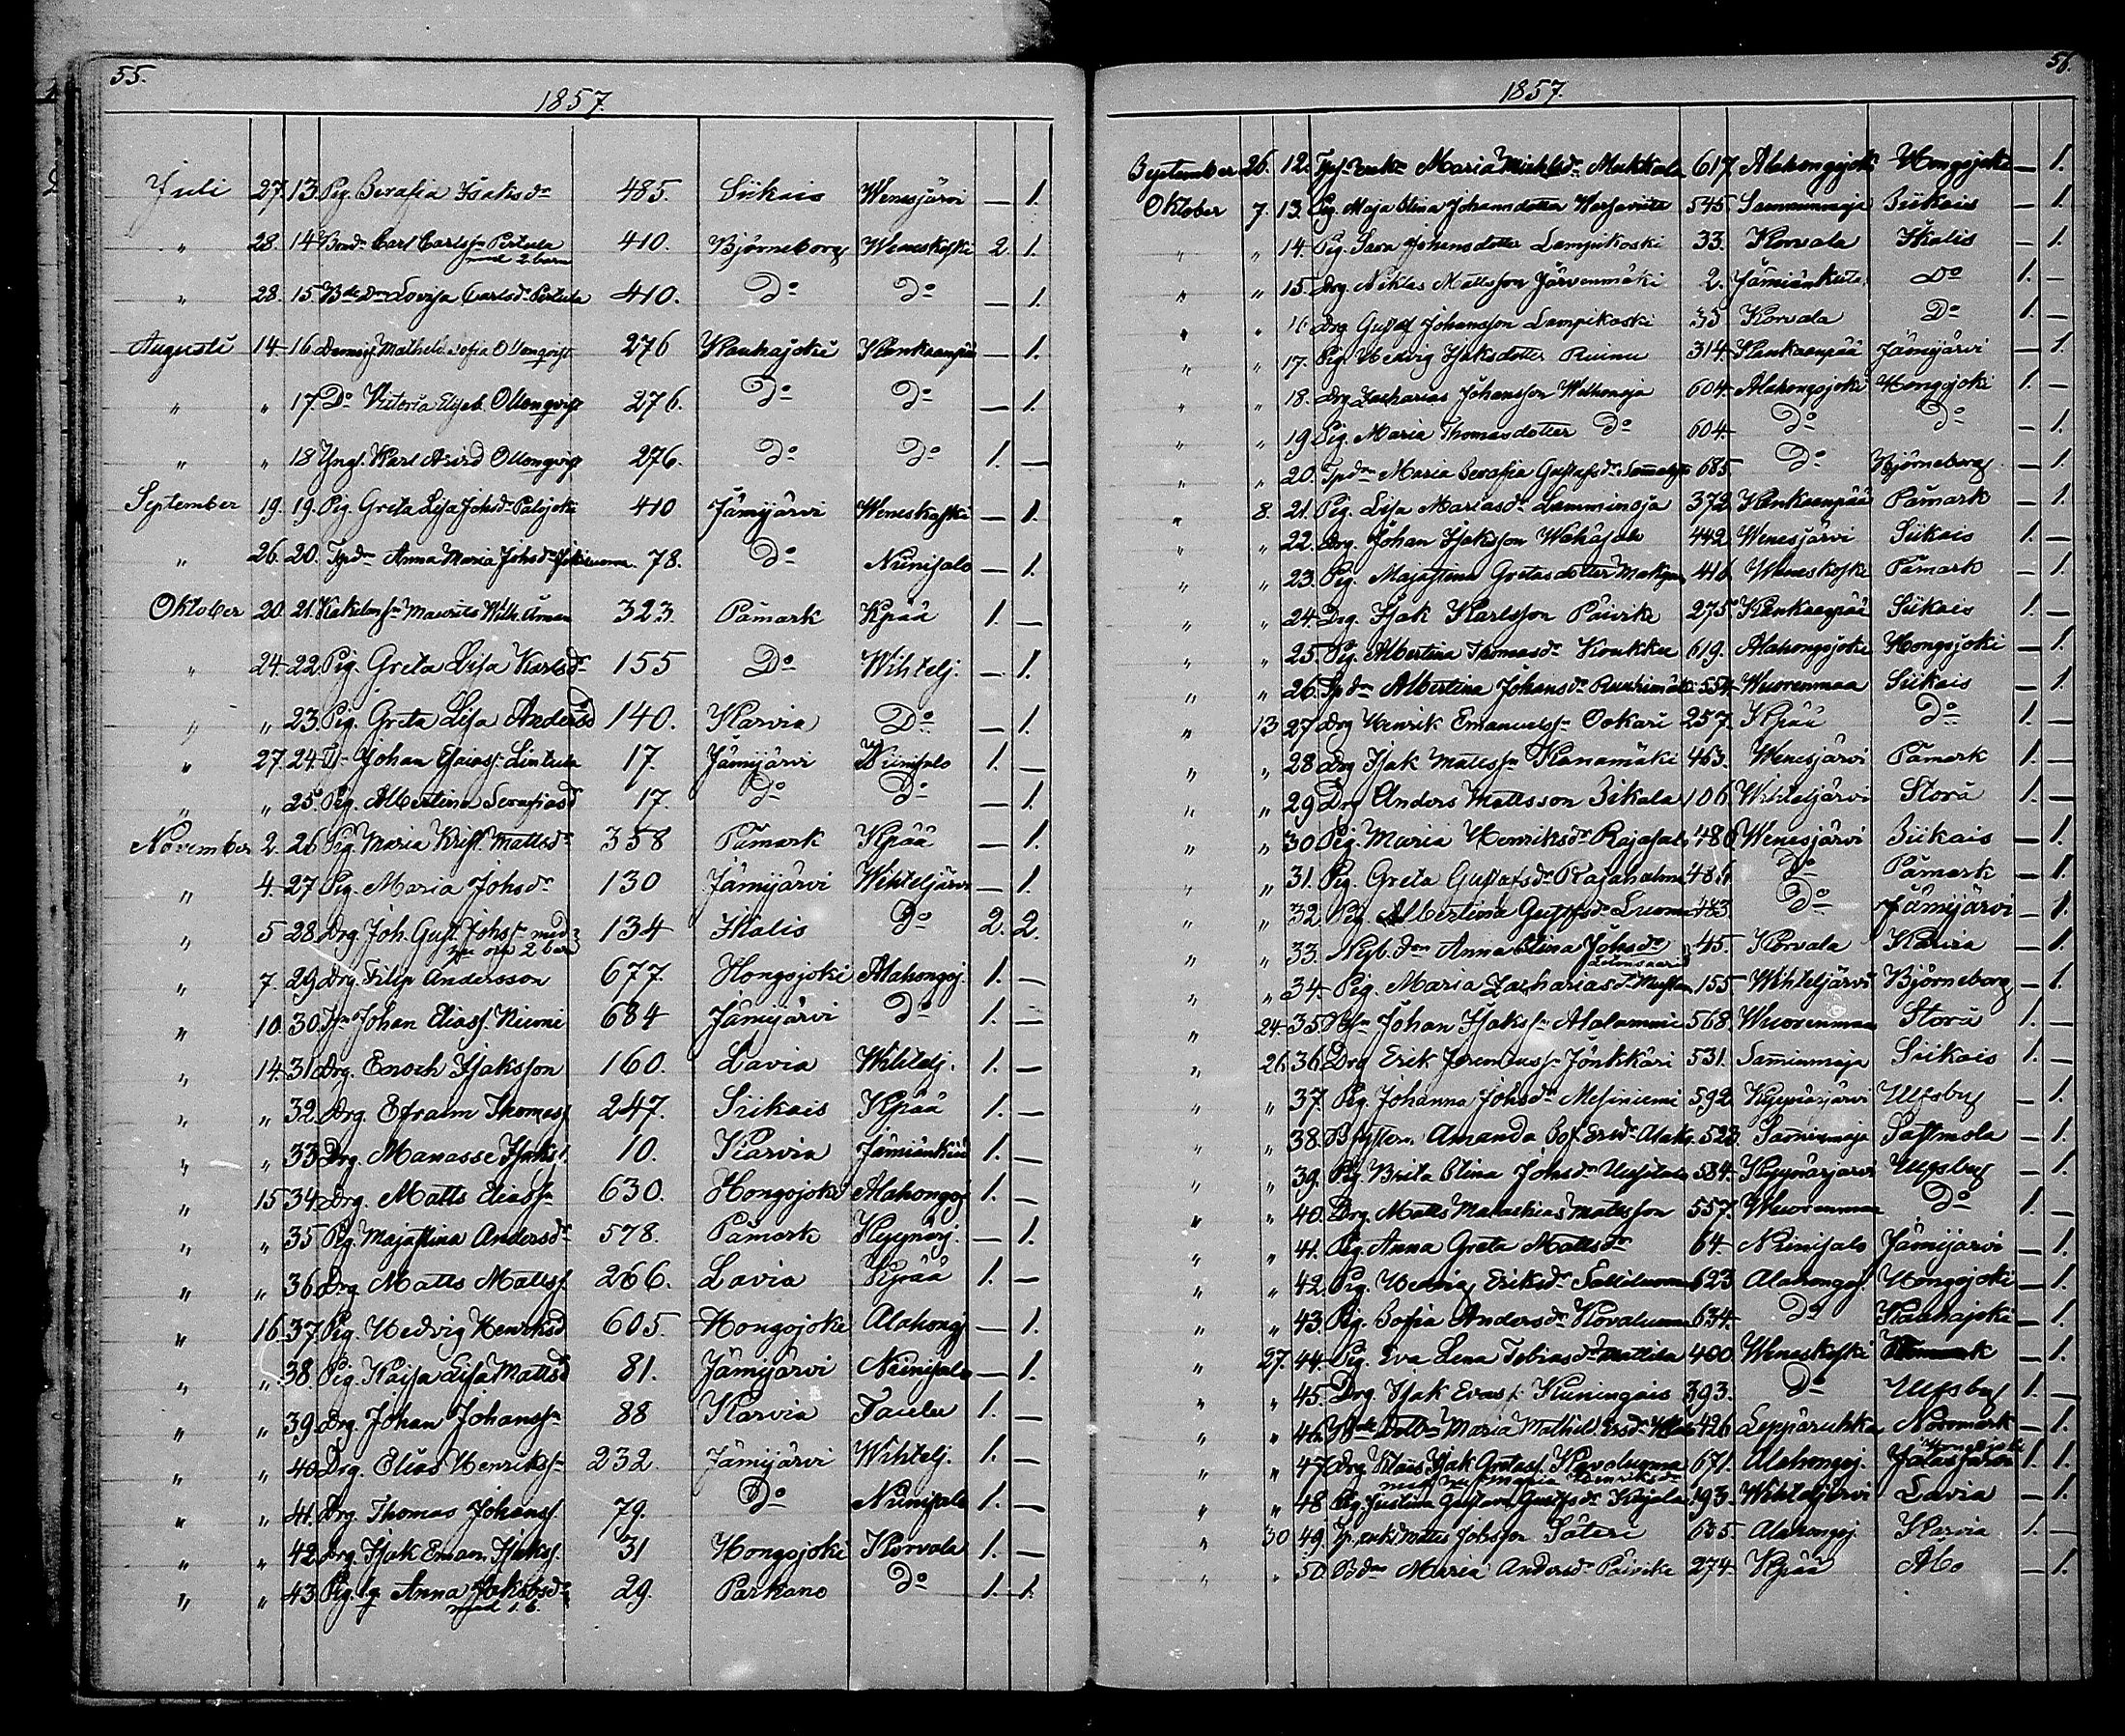 55.
1857.
Juli 27. 13. Pig. Serafia Isaksdr 485. Siikais Wenesjärvi — 1.
" 28. 14. Bond. Carl Carlsson Pertula 410. Björneborg Weneskoski 2. 1.
med 2 barn
" 28. 15. Bde Dr Lovisa Carlsdr Pertula 410. Do Do — 1.
Augusti 14. 16. Demois. Mathild Sofia Ollonqvist 276 Kauhajoki Kankaanpää — 1.
" " 17. Do Victoria Elisab. Ollonqvist 276. Do Do — 1.
" " 18 Yngl. Karl Arvid Ollonqvist 276. Do Do 1. —
September 19. 19. Pig. Greta Lisa Johsdr Palojoki 410 Jämijärvi Weneskoski — 1.
" 26. 20. Anna Maria Johsdr 78. Do Niinisalo — 1.
Oktober 20. 21. Maurits Wilh. Åman 323. Påmark Kpää 1. —
" 24. 22. Pig. Greta Lisa Karlsdr 155 Do Wihtelj. — 1.
" " 23. Pig. Greta Lisa Andersd 140. Karvia Do — 1.
" 27. 24. Johan Esaiass. Lintula 17. Jämijärvi Niinisalo 1. —
" " 25. Pig. Albertina Serafiasd 17. Do Do — 1.
November 2. 26 Pig. Maria Krist. Mattsdr 358 Påmark Kpää — 1.
" 4. 27 Pig. Maria Johsdr 130 Jämijärvi Wihteljärvi — 1.
" 5 28. Drg. Joh. Gust. Johss. med 134 Ikalis Do 2. 2.
och 2 barn
" 7. 29 Drg. Filip Andersson 677. Hongojoki Alahongoj. 1. —
" 10. 30. Johan Eliass. Niemi 684 Jämijärvi Do 1. —
" 14. 31. Drg. Enoch Isaksson 160. Lavia Wihtelj. 1. —
" " 32. Drg. Efraim Thomass. 247. Siikais Kpää 1. —
" " 33 Drg. Manasse Isakss. 10. Karvia Jämiänkiid 1. —
" 15 34. Drg. Matts Eliassn 630. Hongojoki Alahongoj 1. —
" " 35 Pig. Majastina Andersdr 578. Påmark Kyynärj. — 1.
" " 36 Drg. Matts Mattss. 266. Lavia Kpää 1. —
" 16. 37. Pig. Hedvig Henriksd 605. Hongojoki Alahongj — 1.
" " 38. Pig. Kaisa Lisa Mattsd 81. Jämijärvi Niinisalo — 1.
" " 39. Drg. Johan Johanssn 88 Karvia Taulu 1. —
" " 40 Drg. Elias Henrikssn 232. Jämijärvi Wihtelj. 1. —
" " 41. Drg. Thomas Johanss. 79. Do Niinisalo 1. —
" " 42 Drg. Isak Eman. Isakss. 31 Hongojoki Korvala 1. —
" " 43. Pig. Anna Jakobsdr 29. Parkano Do 1. 1.
med 1. b.
56.
1857.
September 26. 12. Maria Michelsdr Mukkala 617. Alahongojoki Hongojoki — 1.
Oktober 7. 13. Pig. Maja Stina Johansdotter 545 Samminmaja Siikais — 1.
" " 14. Pig. Sara Johansdotter Lampikoski 33. Korvala Ikalis — 1.
" " 15. Drg. Niklas Mattsson Järvenmäki 2. Jämiänkiita Do 1. —
" " 16. Drg Gustaf Johansson Lampikoski 33 Korvala Do 1. —
" " 17. Pig. Hedvig Isaksdotter 314 Kankaanpää Jämijärvi — 1.
" " 18. Drg Zacharias Johansson 604. Alahongojoki Hongojoki 1. —
" " 19. Pig. Maria Thomasdotter Do 604. Do Do — 1.
" " 20. Maria Serafia Gustafsdr 685 Do Björneborg — 1.
" 8. 21. Pig. Lisa Mariasdr Lamminoja 372 Kankaanpää Påmark — 1.
" " 22. Drg. Johan Isaksson 442. Wenesjärvi Siikais 1. —
" " 23. Pig. Majastina Gretasdotter 416 Weneskoski Påmark — 1.
" " 24. Drg. Isak Karlsson Päivike 275. Kankaanpää Siikais 1. —
" " 25. Pig. Albertina Thomasdr 619. Alahongojoki Hongojoki — 1.
" " 26. Albertina Johansdr 554 Wuorenmaa Siikais — 1.
" 13 27 Drg Henrik Emanuelss. Ookari 257. Kpää Do 1. —
" " 28 Drg Isak Mattssn Kanamäki 463. Wenesjärvi Påmark 1. —
" " 29. Drg Anders Mattsson Sikala 106. Wihteljärvi Storå 1. —
" " 30 Pig. Maria Henriksdr Rajasalo 486 Wenesjärvi Siikais — 1.
" " 31. Pig. Greta Gustafsdr Rajahalme 486 Do Påmark — 1.
" " 32 Pig. Albertina Gustfsdr Luoma 483 Do Jämijärvi — 1.
" " 33. Anna Stina Johsdr 45. Korvala Karvia — 1.
" " 34. Pig. Maria Zachariasdr 155. Wihteljärvi Björneborg — 1.
" 24. 35. Johan Isakssn Alalammi 568. Wuorenmaa Storå 1. —
" 26. 36. Drg Erik Jönkkäri 531. Samminmaja Siikais 1. —
" " 37. Pig. Johanna Johsdr Mesiniemi 592 Kyynärjärvi Ulfsby — 1.
" " 38. Amanda Sof. 523. Samminmaja Sastmola — 1.
" " 39. Pig. Brita Stina Johsdr 584. Kyynärjärvi Ulfsby — 1.
" " 40. Drg. Matts Malachias Mattsson 557. Wuorenmaa Do 1. —
" " 41. Pig. Anna Greta Mattsdr 64 Niinisalo Jämijärvi — 1.
" " 42. Pig. Hedvig Eriksdr 623 Alahongoj. Hongojoki — 1.
" " 43. Pig. Sofia Andersdr Kovaluoma 634. Do Kauhajoki — 1.
" 27. 44. Pig. Eva Lena Tobiasdr Mattila 400. Weneskoski — 1.
" " 45. Drg. Isak Evass. Kuningais 393. Do Ulfsby 1. —
" " 46. Maria Mathild. 426 Leppäruhka Norrmark — 1.
" " 47 Drg Klaus Isak Gretass. Kovaluoma 671. Alahongoj. Hongojoki 1. 1.
med hu Maria Henriksdr
" " 48 Pig. Justina Gustava Gustfsdr 193. Wihteljärvi Lavia — 1.
" 30 49. Matts Johsson Säteri 635 Alahongoj. Karvia 1. —
" " 50. Maria Andersdr Päivike 274. Kpää Åbo — 1.